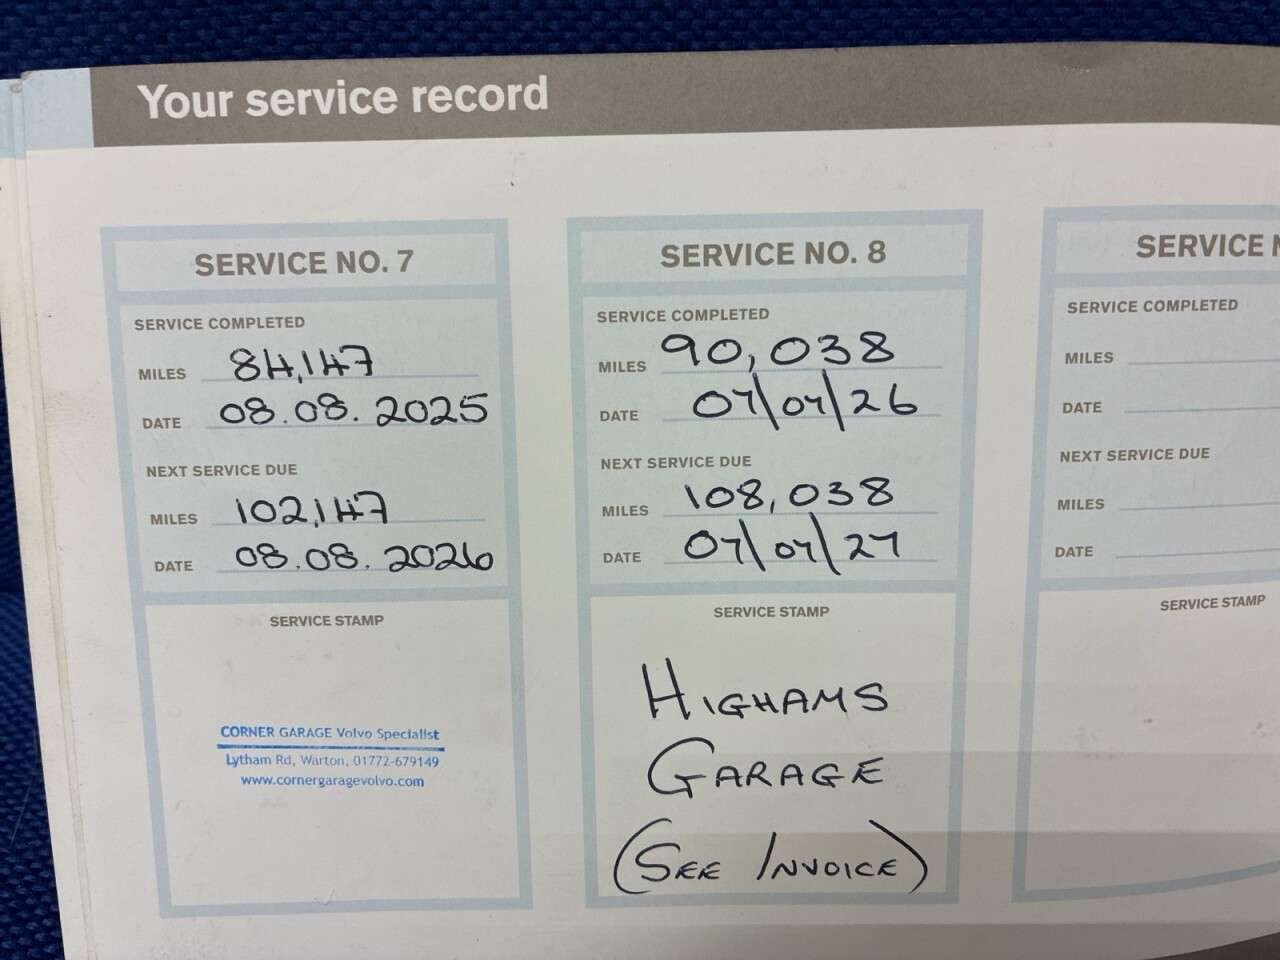 Your service record
SERVICE NO. 7
SERVICE COMPLETED
MILES 84,147
DATE 08.08.2025
NEXT SERVICE DUE
MILES 102,147
DATE 08.08.2026
SERVICE STAMP
CORNER GARAGE Volvo Specialist
Lytham Rd, Warton, 01772-679149
www.cornergaragevolvo.com
SERVICE NO. 8
SERVICE COMPLETED
MILES 90,038
DATE 07/07/26
NEXT SERVICE DUE
MILES 108,038
DATE 07/07/27
SERVICE STAMP
HIGHAMS
GARAGE
(SEE INVOICE)
SERVICE
SERVICE COMPLETED
MILES
DATE
NEXT SERVICE DUE
MILES
DATE
SERVICE STAMP